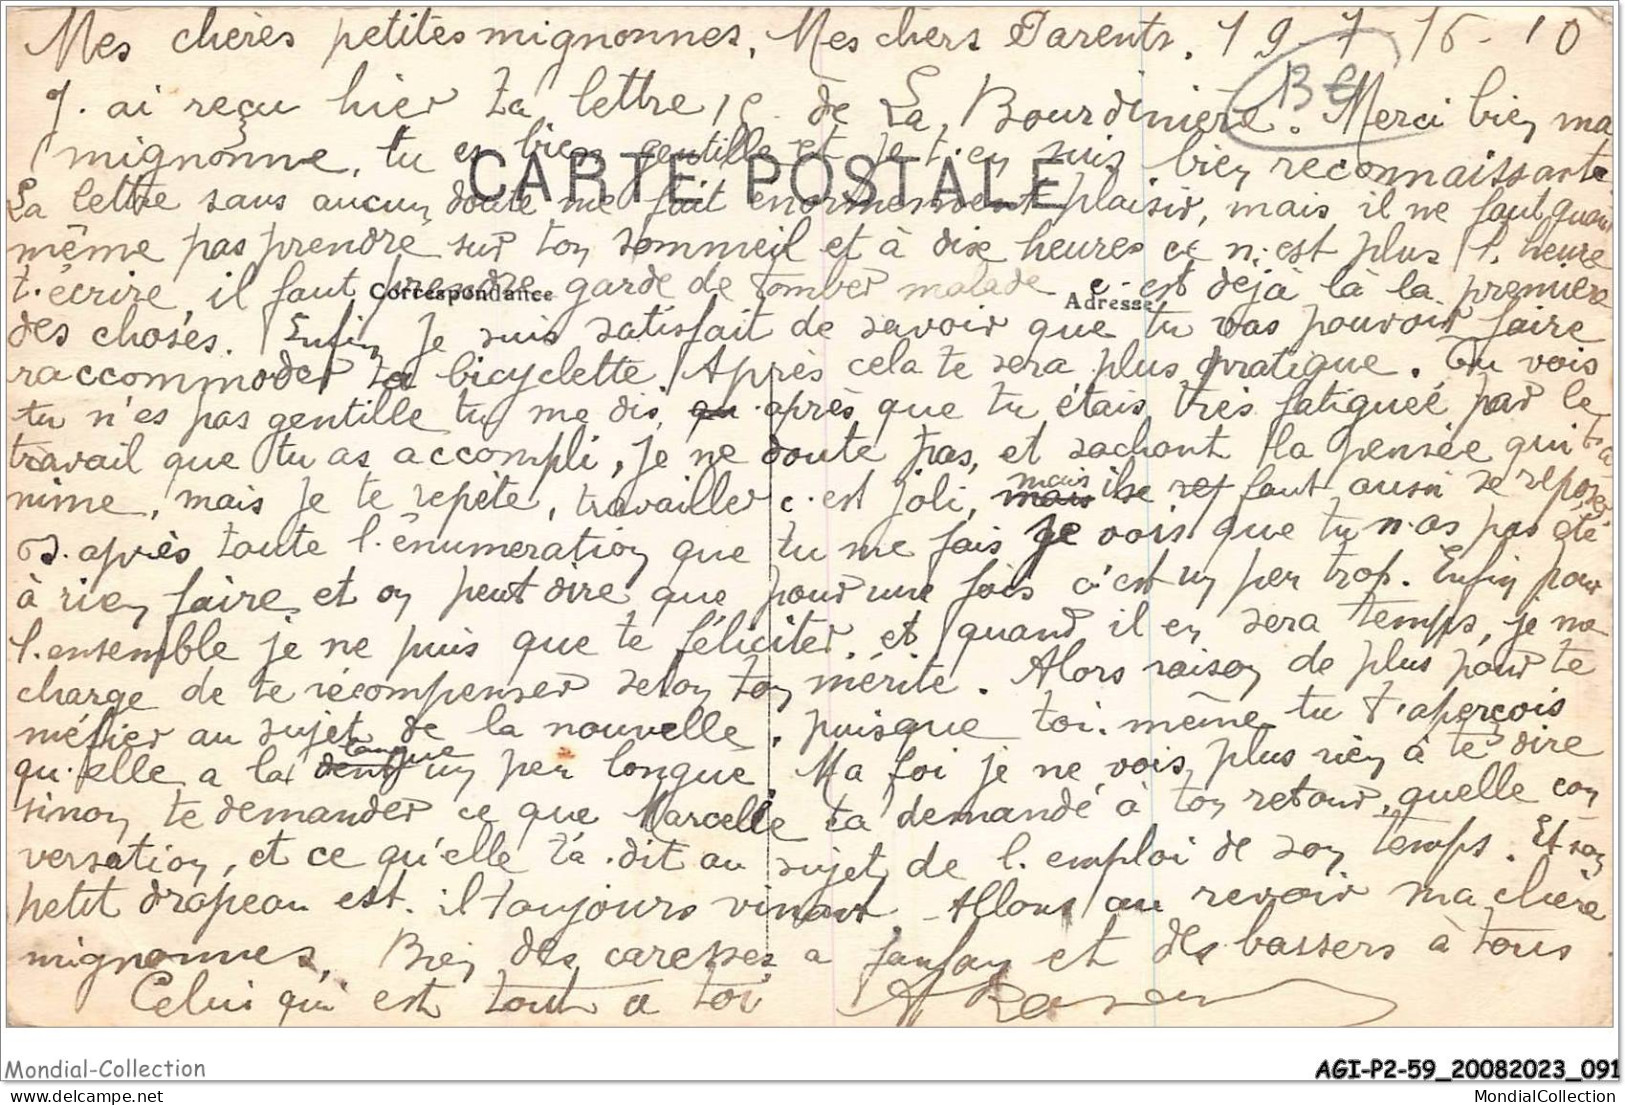 Mes chères petites mignonnes, Mes chers Parents, 19 7 16 - 10
BE
J. ai reçu hier ta lettre 15 de La Bourdinière. Merci bien ma
mignonne, tu es bien gentille et je t'en suis bien reconnaissante
CARTE POSTALE
La lettre sans aucun doute me fait enormement plaisir, mais il ne faut quand
même pas prendre sur ton sommeil et à dixe heures ce n'est plus l. heure
t. écrire il faut prendre garde de tomber malade c. est déjà là la première
Correspondance Adresse
des choses. Enfin je suis satisfait de savoir que tu vas pouvoir faire
raccommoder ta bicyclette. Après cela te sera plus pratique. Tu vois
tu n'es pas gentille tu me dis, qu après que tu étais très fatigueé par le
travail que tu as accompli, je ne doute pas, et sachant la pensée qui t'a
nime, mais je te repète, travailler c. est joli, mais mais il se faut aussi se reposer
D. après toute l. énumeration que tu me fais je vois que tu n. as pas été
à rien faire et on peut dire que pour une fois c'est un peu trop. Enfin pour
l. ensemble je ne puis que te féliciter, et quand il en sera temps, je me
charge de te récompenser selon ton mérite. Alors raison de plus pour te
méfier au sujet de la nouvelle, puisque toi. même tu t'aperçois
qu. elle a la langue un peu longue. Ma foi je ne vois plus rien à te dire
sinon te demander ce que Marcelle ta demandé à ton retour, quelle con
versation, et ce qu'elle t'a. dit au sujet de l. emploi de son temps. Et son
petit drapeau est. il toujours vivant. Allons au revoir ma chère
mignonnes, Bien des caresses a fanfan et des bassers à tous
Celui qui est tout a toi
Mondial-Collection
AGI-P2-59_20082023_091
MondialCollection
delcampe.net